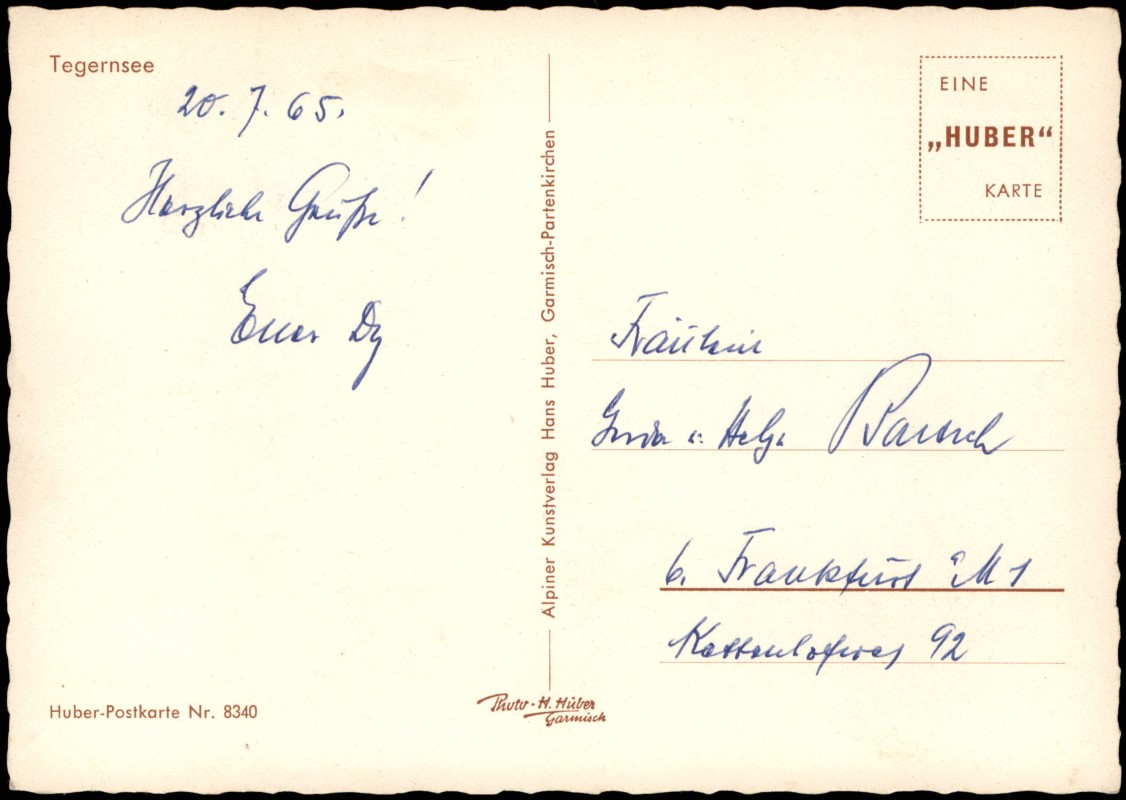 Tegernsee
20. 7. 65.
Herzliche Grüße!
Euer
Huber-Postkarte Nr. 8340
Alpiner Kunstverlag Hans Huber, Garmisch-Partenkirchen
Photo-H. Huber
Garmisch
EINE
„HUBER“
KARTE
Fräulein
u. Helga
6. Frankfurt a/M 1
Kettenhofweg 92